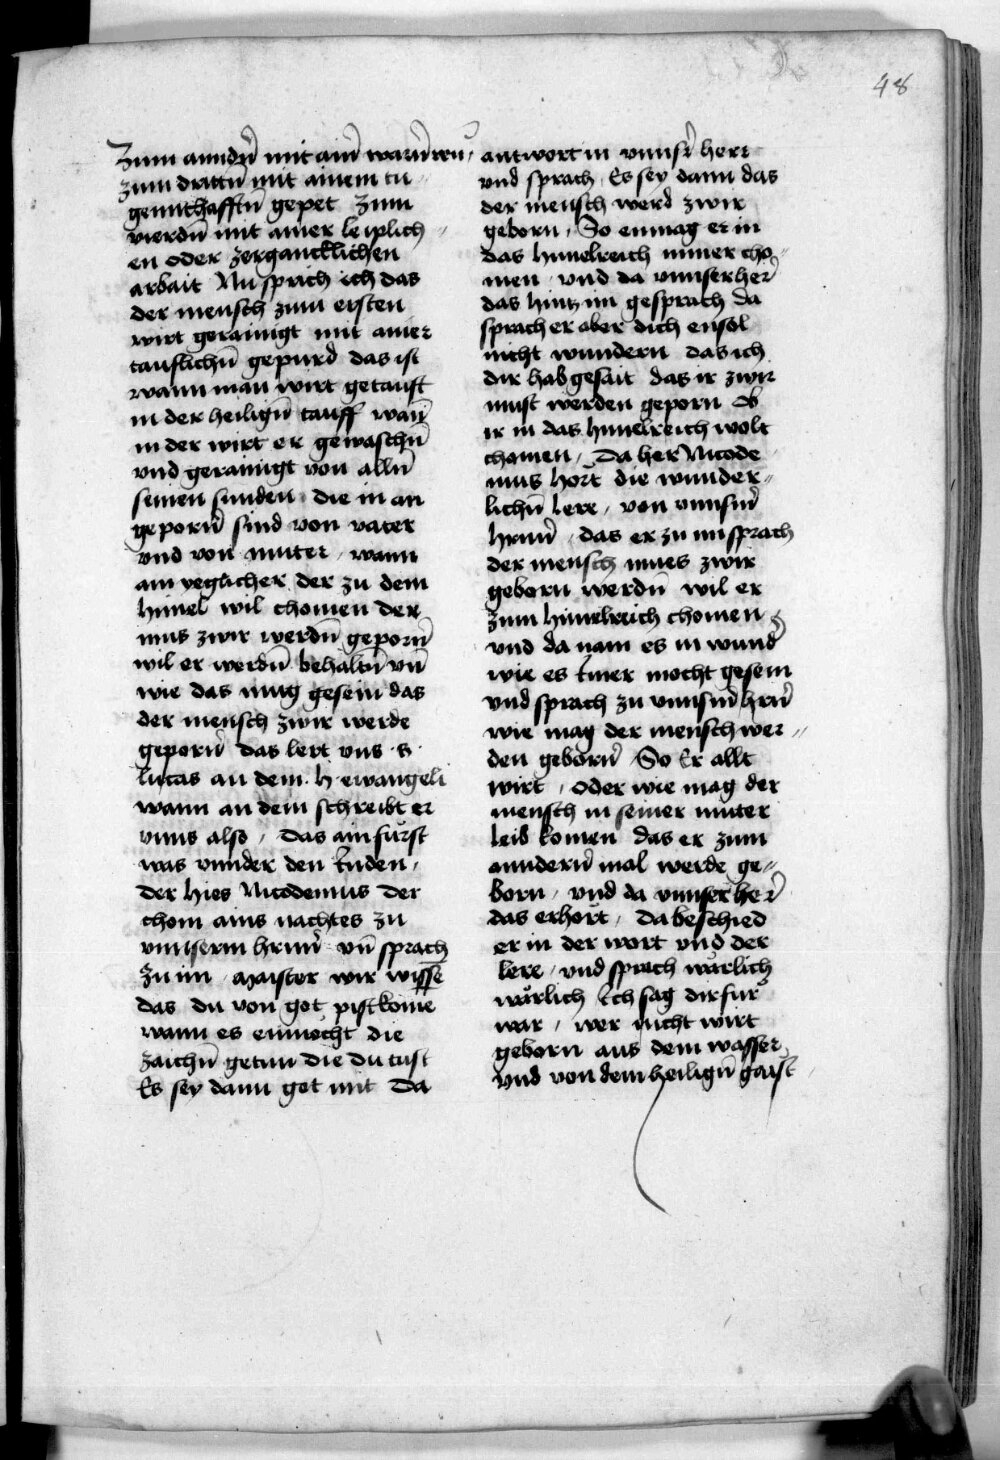 48
Zum anndern̄ mit aim̄ warn̄ rew,
zum drittn̄ mit ainem tu
gennthafftn̄ gepet Zum
vierdn̄ mit ainer leiplich〃
en oder zergancklichen
arbait Nu sprach ich das
der mensch zum ersten
wirt gerainigt mit ainer
tauflichn̄ gepurd das ist
wann man wirt getauft
in der heilign̄ tauff wan̄
in der wirt er gewaschn̄
vnd gerainigt von alln̄
seinen sunden die in an
geporn̄ sind von vater
vnd von muter, wann
ain yeglicher der zu dem
himel wil chomen der
mus zwir werdn̄ geporn̄
wil er werdn̄ behaltn̄ vn̄
wie das mug gesein das
der mensch zwir werde
geporn̄ das lert vns · S ·
lucas an dem · h · ewangeli
wann an dem schreibt er
vnns also, das ain fürst
was vnnder den Juden,
der hies Nicodemus der
chom ains nachtes zu
vnnserm hrnn̄ vn̄ sprach
zu im, Maister wir wissē
das du von got pist komē
wann es enmocht die
zaichn̄ getun die du tust
Es sey dann got mit Da
antwort in vnnsr̄ herr
vnd sprach, Es sey dann das
der mensch werd zwir
geborn, So enmag er in
das himelreich nimer cho〃
men, vnd da vnnser her̄
das hintz im gesprach da
sprach er aber dich ensol
nicht wundern das ich
dir hab gesait das ir zwir
must werden geporn Ob
ir in das himelreich wolt
chomen, Da her Nicode
mus hört die wunder〃
lichn̄ lere, von vnnsm̄
hrnn̄, das er zu im sprach
der mensch mues zwir
geborn werdn̄ wil er
zum himelreich chomen
vnd da nam es in wund̄
wie es Jmer mocht gesein
vnd sprach zu vnnsm̄ hrn̄
wie mag der mensch wer〃
den geborn̄ So Er allt
wirt, oder wie mag der
mensch in seiner muter
leib komen das er zum
anndern̄ mal werde ge〃
born, vnd da vnnser her̄
das erhört, da beschied
er in der wort vnd der
lere, vnd sprach wärlich
wärlich Ich sag dir für
war, wer nicht wirt
geborn aus dem wasser,
vnd von dem heilign̄ gaist